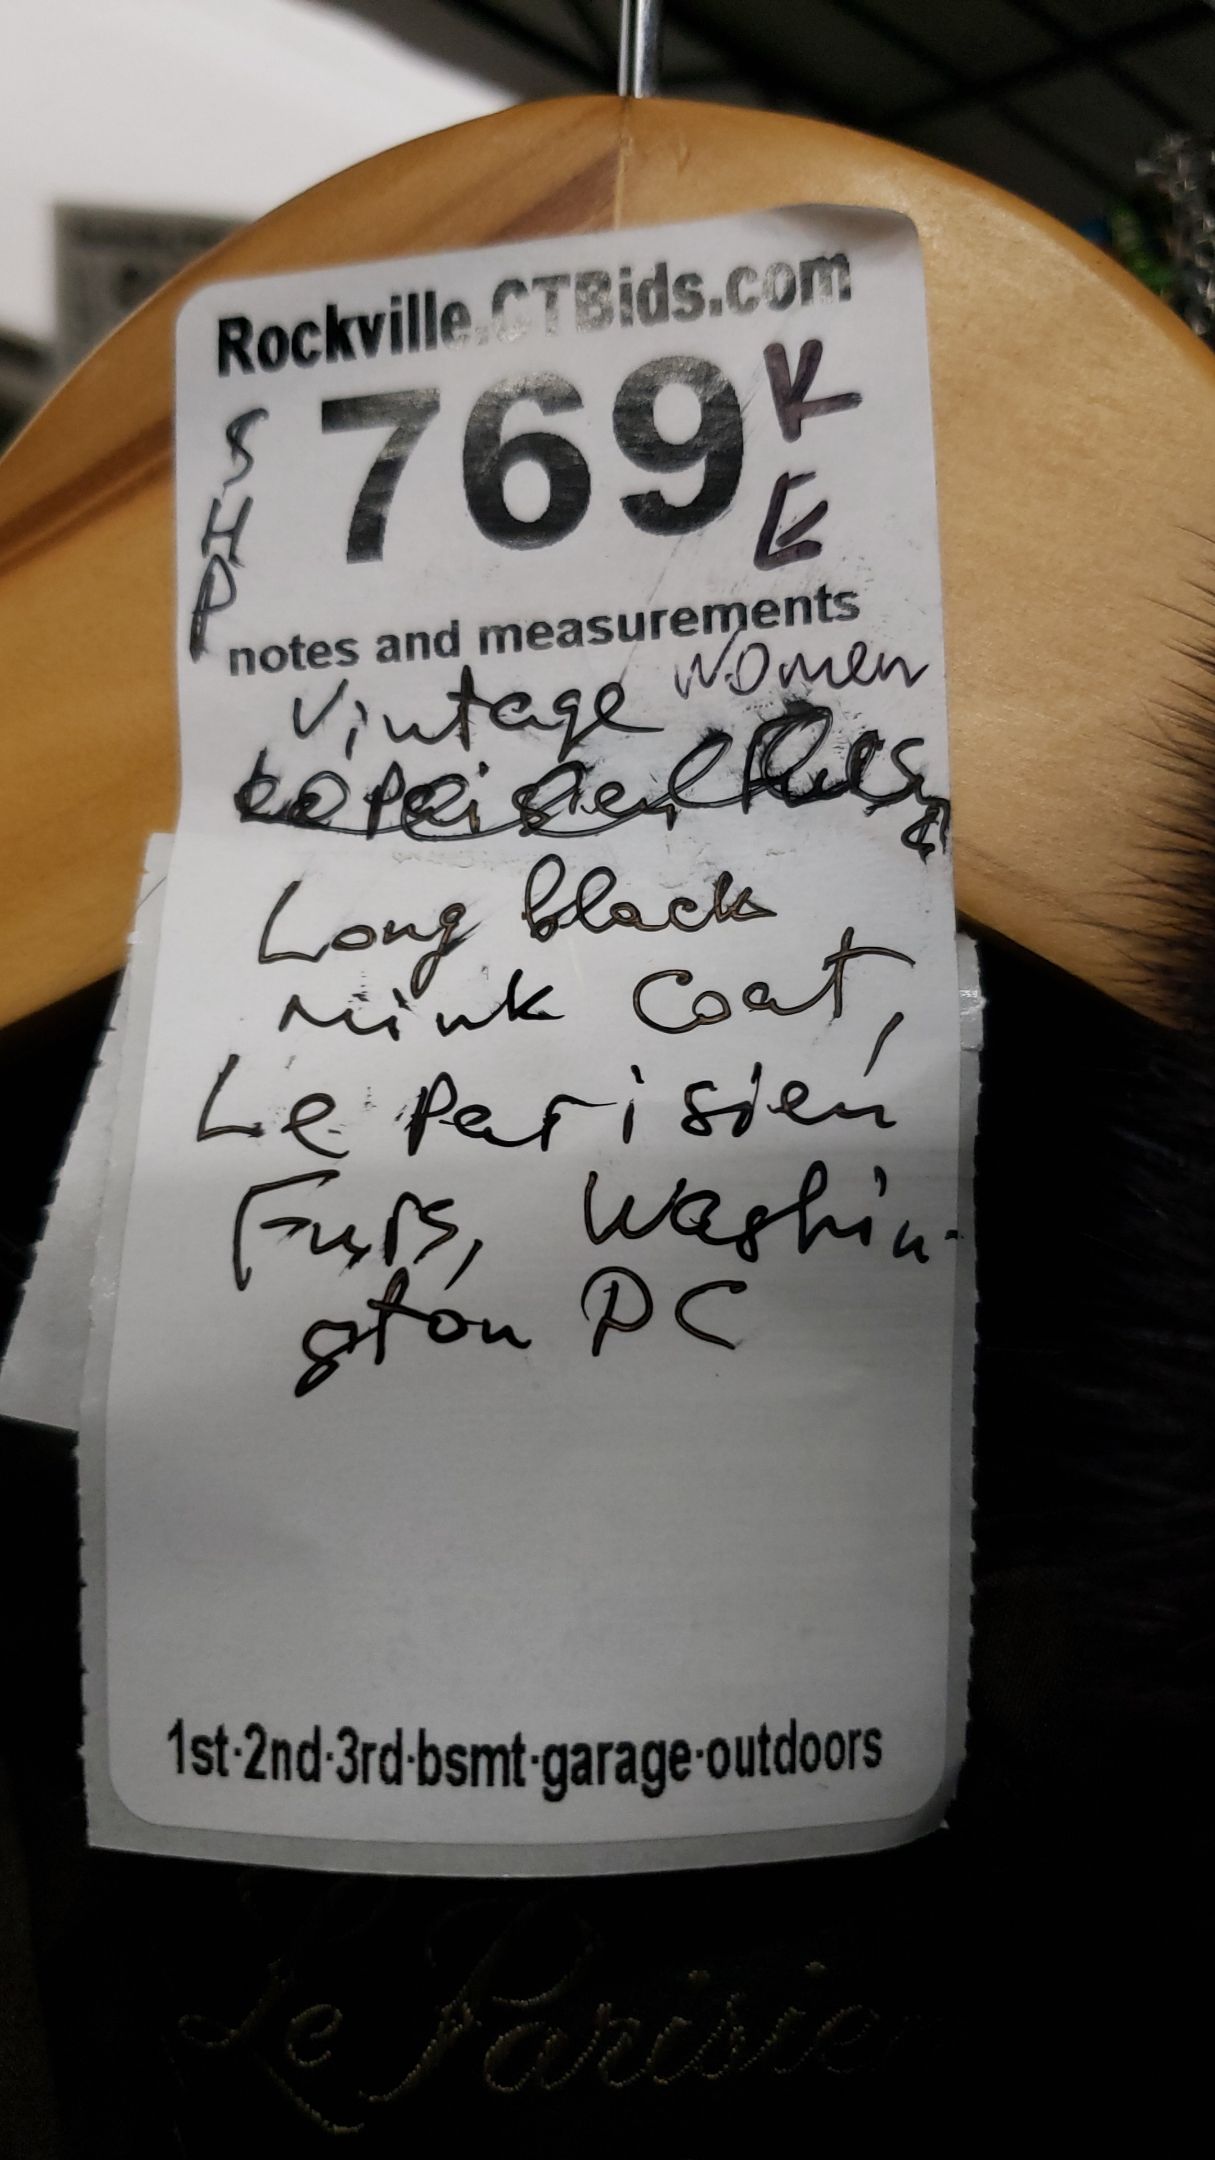 Rockville.CTBids.com
SHP 769 KE
notes and measurements
Vintage Women
Long black
mink coat,
Le Parisien
Furs, Washin-
gton DC
1st·2nd·3rd·bsmt·garage·outdoors
Le Parisien